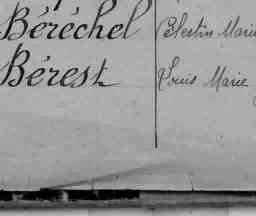 Béréchel Célestin Marie
Bérest Louis Marie